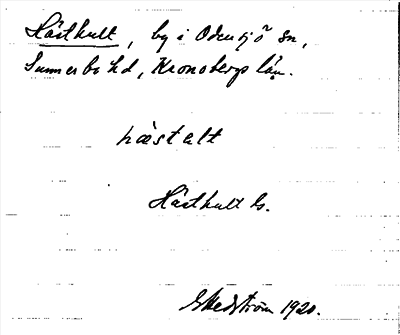 Hästhult, by i Odensjö sn,
Sunnerbo hd, Kronobergs län.
hæstalt
Hästhult
Hedström 1920.